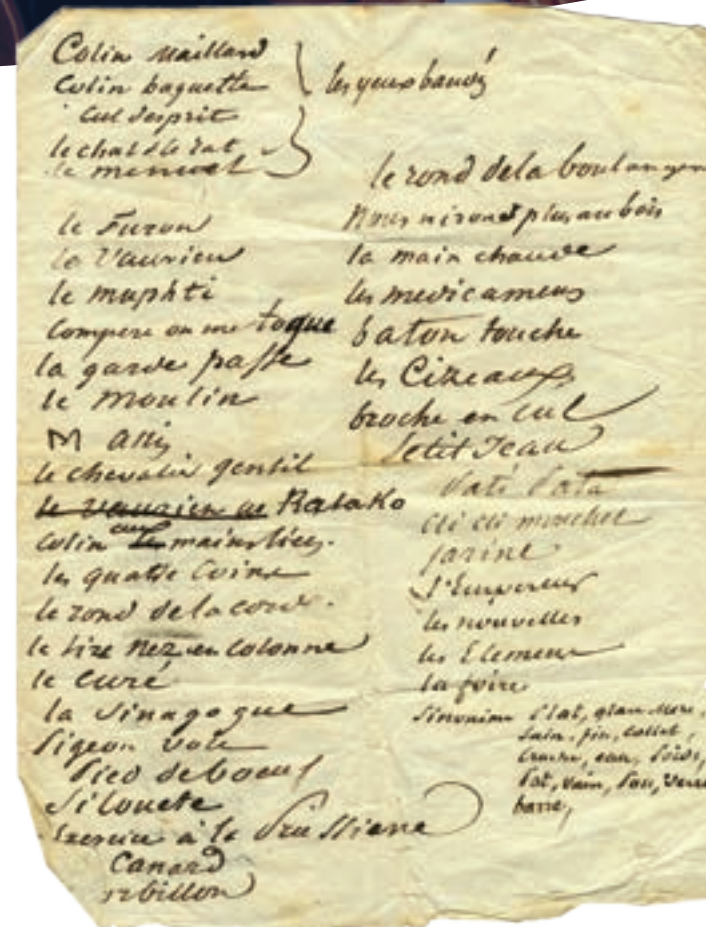 Colin maillard
Colin baguette
les yeux bandés
Cul desprit
le chat & le rat
le menuet
le Furon
le Vaurien
le muphti
Compere on me toque
la garde passe
le moulin
M anis
le chevalier gentil
le vaurien de Ratako
Colin aux le mains liées.
les quatre Coins
le rond de la corde.
le tire nez en colonne
le curé
la Sinagogue
Pigeon vole
Pied de boeuf
Silouete
Exercice à la Prussiene
Canard
rebillon
le rond dela boulangere
Nous nirons plus au bois
la main chaude
les medicamens
baton touche
les Cizeaux
broche en cul
Petit Jean
Pati Pata
cli cli mouchet
farine
l'Empereur
les nouvelles
les Elemens
la foire
Sinonime Plat, glan
Sain, fin, collet,
eau, Poids,
Pat, vain, Pou, verre
barre,